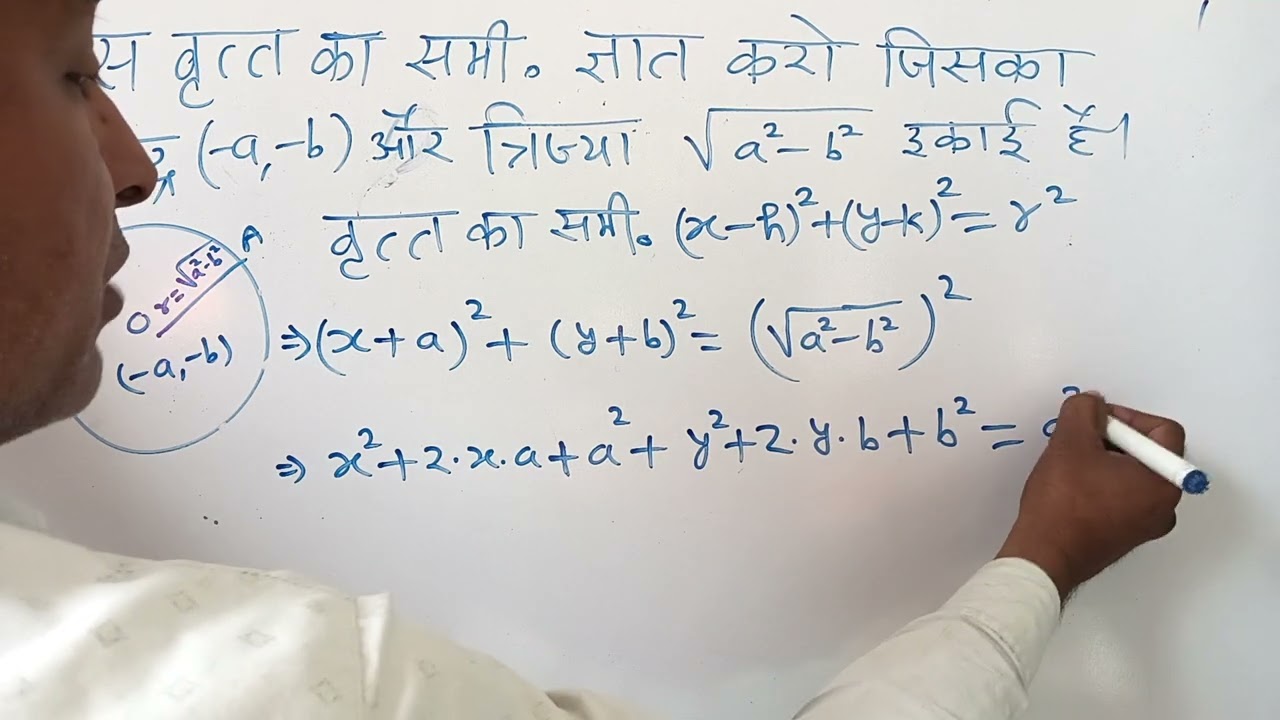 वृत्त का समी. ज्ञात करो जिसका
(-a,-b) और त्रिज्या √(a²-b²) इकाई है।
वृत्त का समी. (x-h)²+(y-k)²=r²
A
r=√(a²-b²)
O
(-a,-b)
⇒(x+a)²+(y+b)²=(√(a²-b²))²
⇒x²+2·x·a+a²+y²+2·y·b+b²=